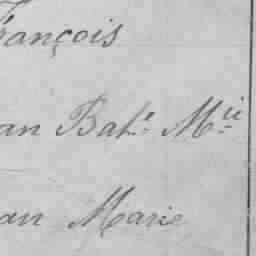 rançois
an Bat.e M.ie
an Marie